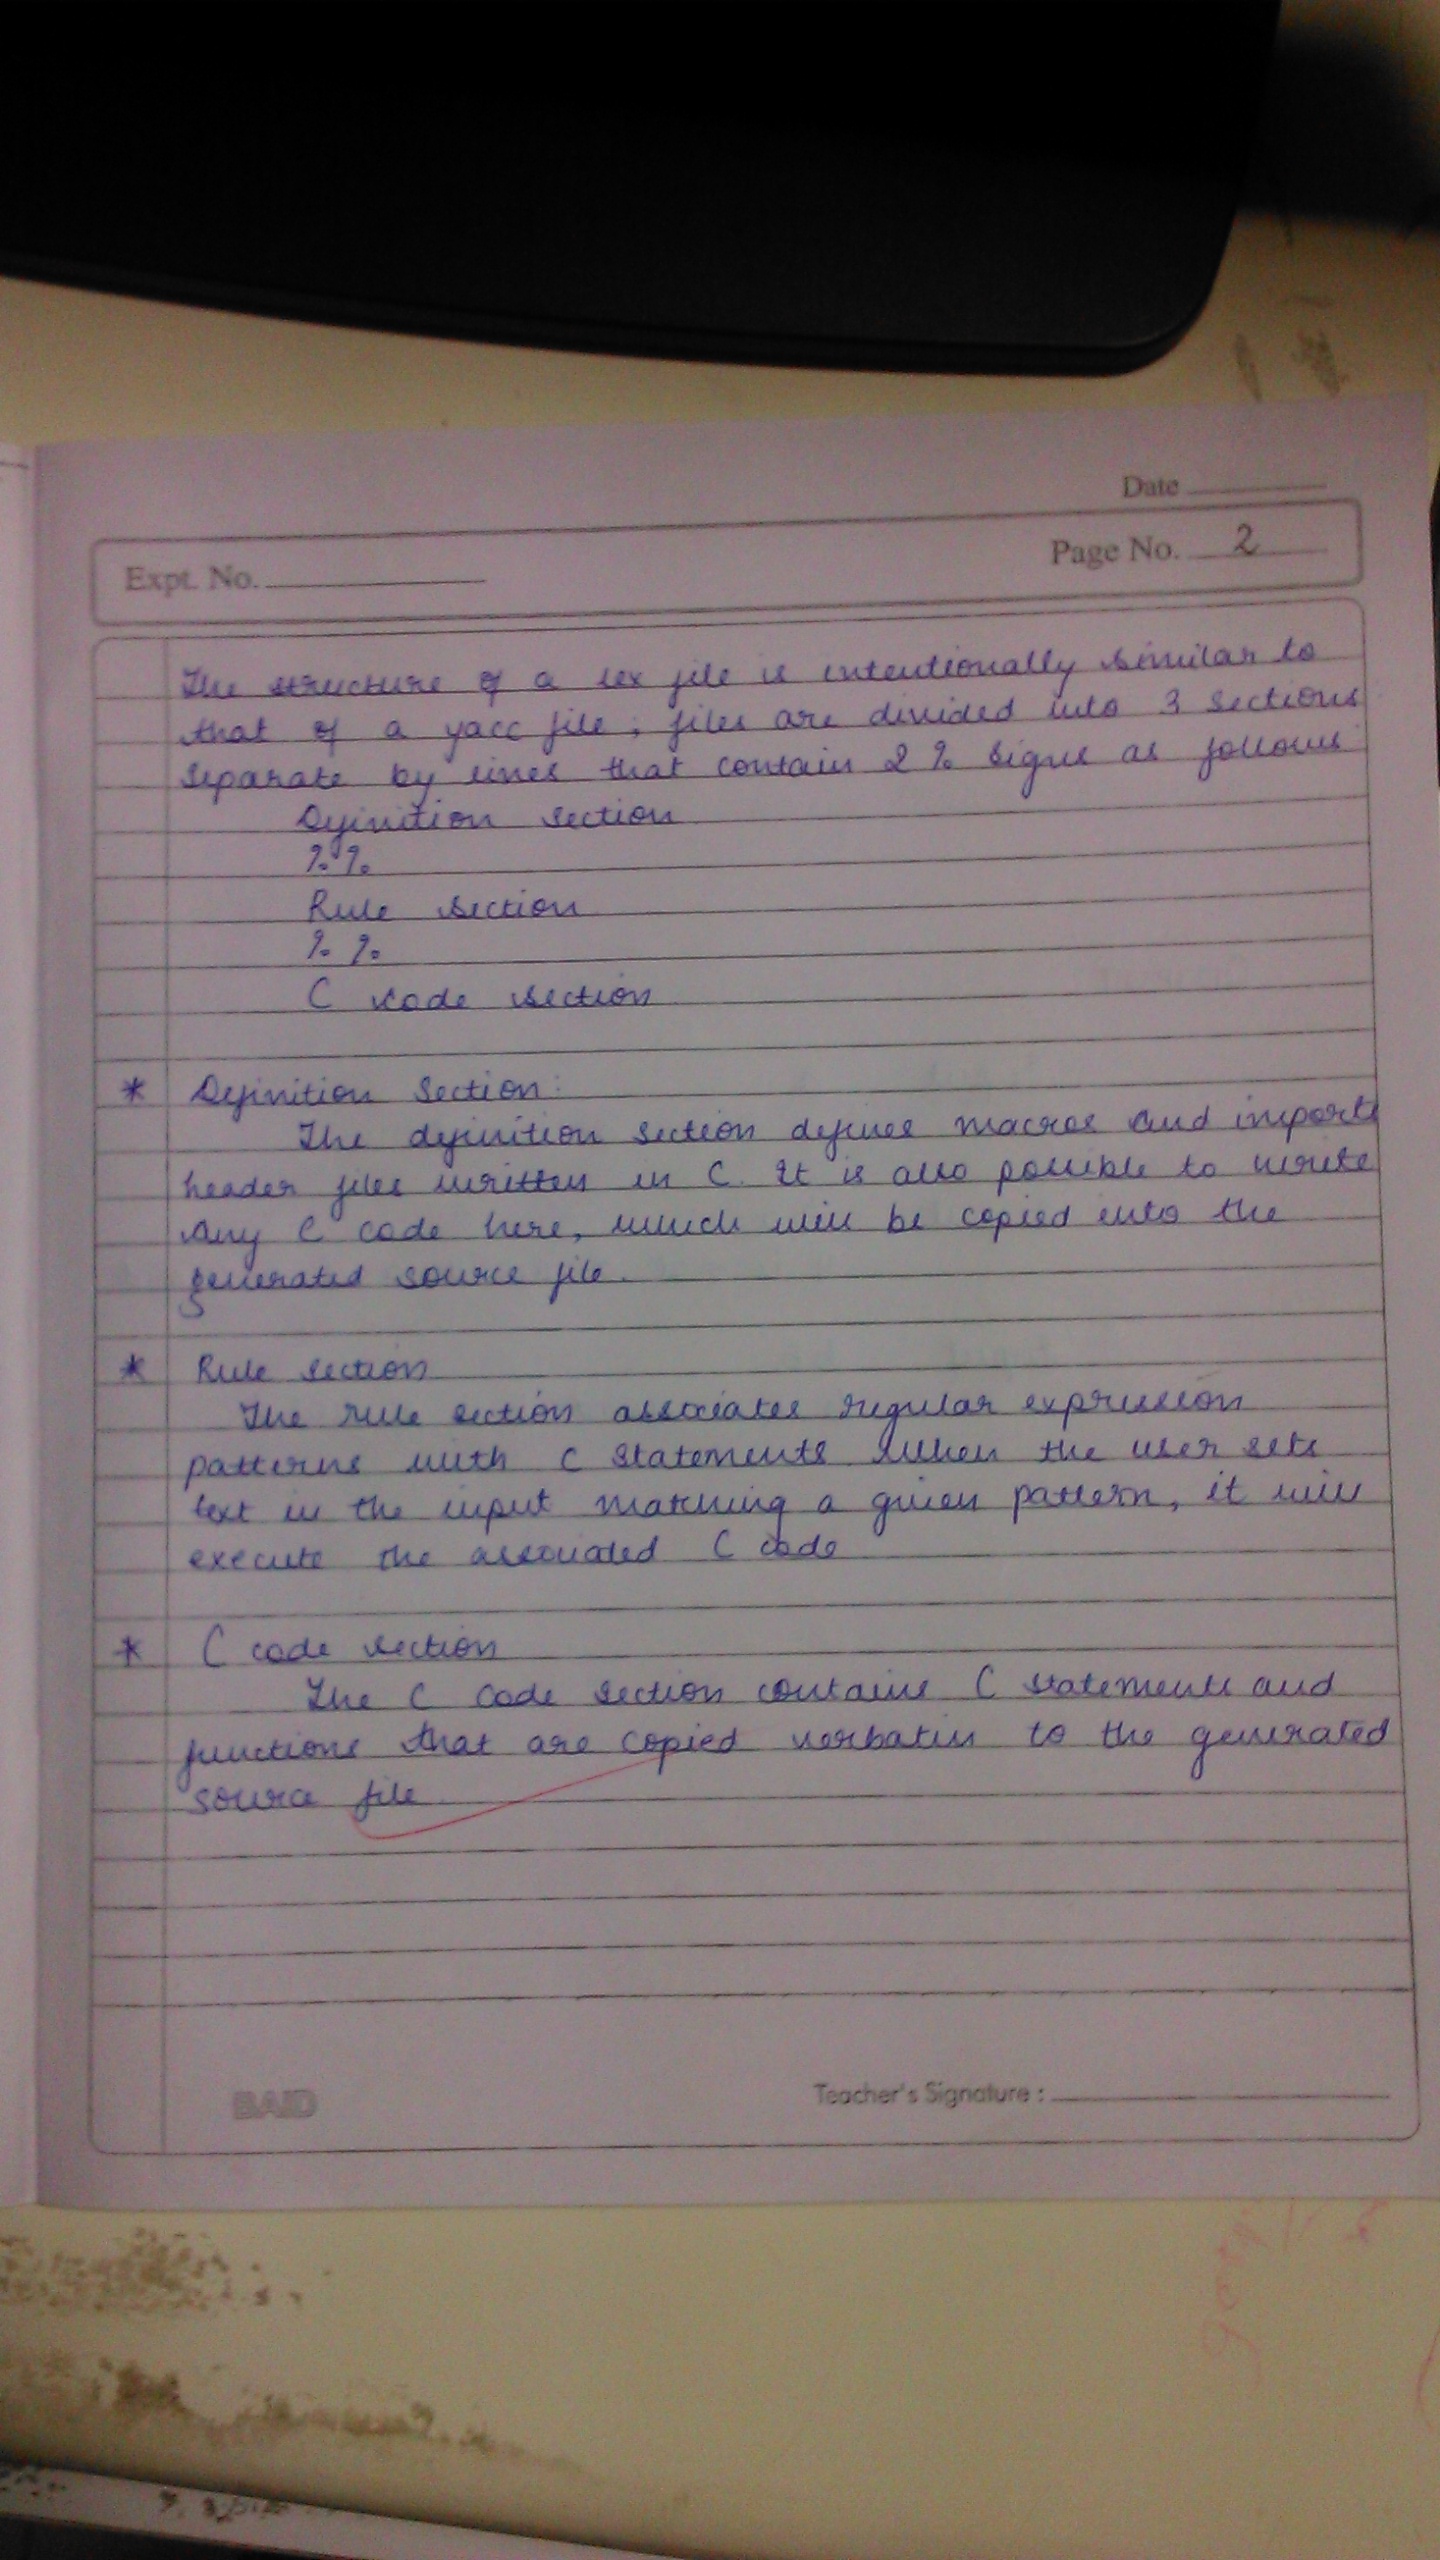 Date
Expt. No.
Page No. 2
The structure of a lex file is intentionally similar to
that of a yacc file; files are divided into 3 sections
separate by lines that contain 2 % signs as follows
Definition section
%%
Rule section
% %
C code section
* Definition Section:
The definition section defines macros and imports
header files written in C. It is also possible to write
any C code here, which will be copied into the
generated source file.
* Rule section
The rule section associates regular expression
patterns with C statements When the user sets
text in the input matching a given pattern, it will
execute the associated C code
* C code section
The C code section contains C statements and
functions that are copied verbatim to the generated
source file
BAID
Teacher's Signature :